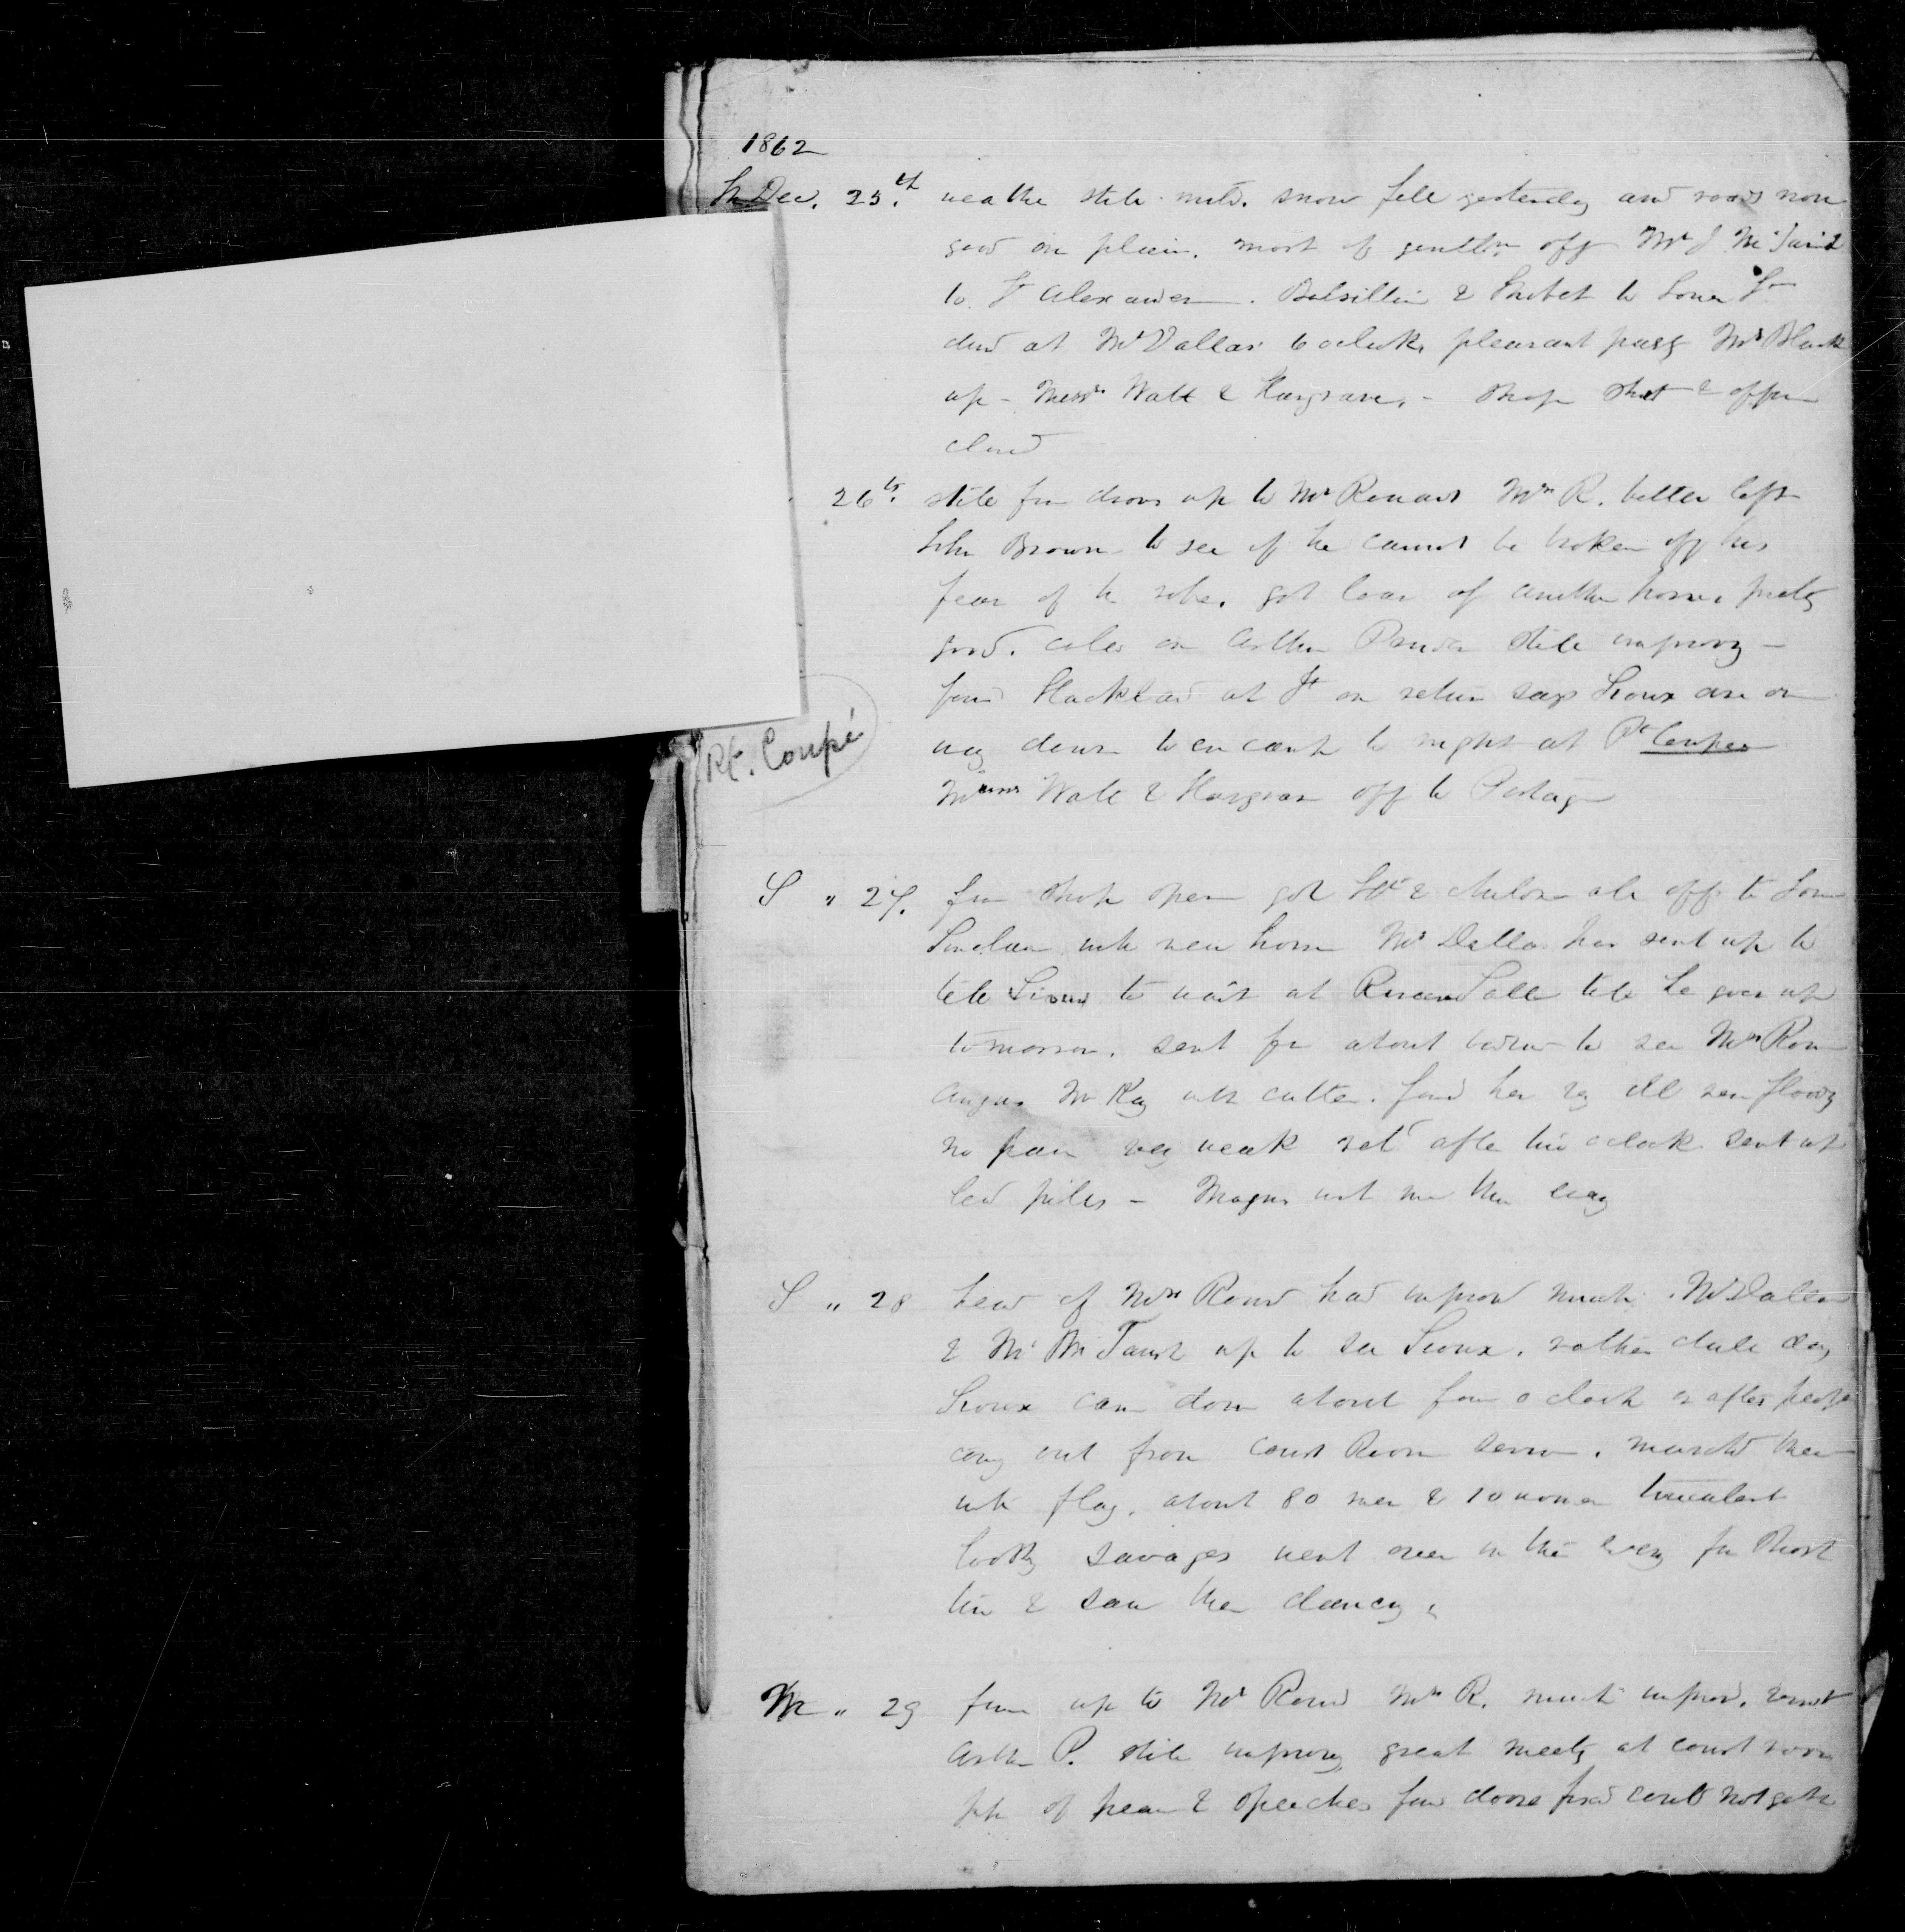 1862
Th Dec. 25th weather still mild. snow fell yesterday and roads now
good on plain. most of gentln off Mr J McTavish
to Ft Alexander. Balsillie & to Lower Ft
dined at Mr Dallas 6 oclock, pleasant party Mr Black
up - Messrs Watt & Hargrave. - Shop shut & office
closed
26th. still fine drove up to Mr Rowand Mrs R. better left
John Brown to see if he cannot be broken off his
fear of the robe. got loan of another horse, pretty
good. called on Arthur Pruden still improvg -
found Hackland at Ft on return says Sioux are on
way down to encamp to night at Pt Coupee
Rt. Coupé
Messrs Watt & Hargrave off to Portage
S " 27. fine shop open got & children all off to John
Sinclair with new horse Mr Dallas has sent up to
tell Sioux to wait at Riviere Salle till he goes up
tomorrow. sent for about to see Mrs Row
Angus McKay with cutter. found her vy ill flowg
no pain vey weak retd after two oclock sent up
lead pills - Magnus with me then
S " 28 hear of Mrs Rowd had improved much. Mr Dallas
& Mr McTavish up to see Sioux. rather dull day
Sioux came down about four o clock as after people
comg out from Court Room service. marched then
with flag. about 80 men & 10 women truculent
lookg savages went over in the eveng for short
time & saw them dancg.
M " 29 fine up to Mr Rowd Mrs R. much improved.
Arthur P. still improvg, great meetg at court room
pipe of peace & speeches found doors could not get in